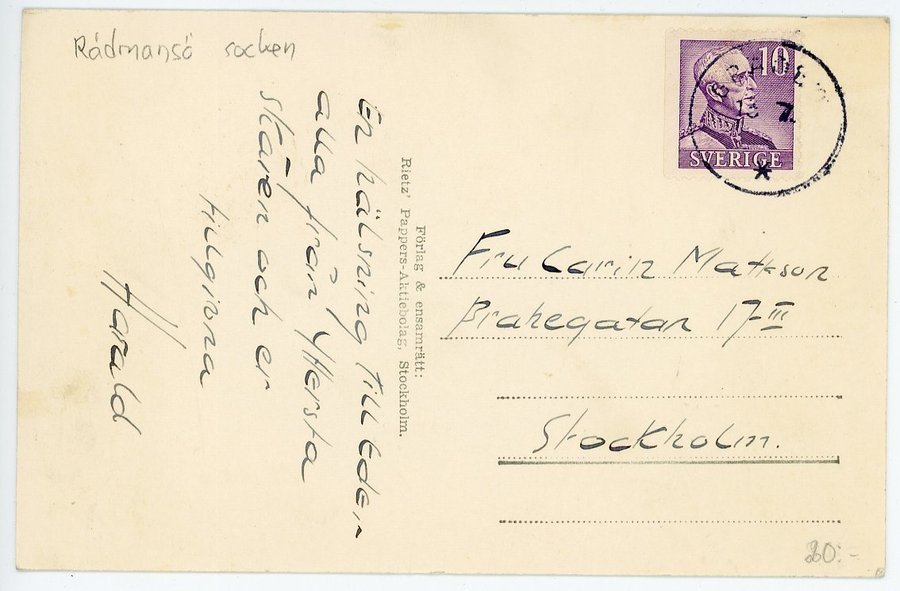 Rådmansö socken
En hälsning till Eder
alla från Yttersta
skären och er
tillgivna
Harald
Förlag & ensamrätt:
Rietz' Pappers-Aktiebolag, Stockholm.
10
SVERIGE
15 7
Fru Carin Mattsson
Brahegatan 17 III
Stockholm.
20:-